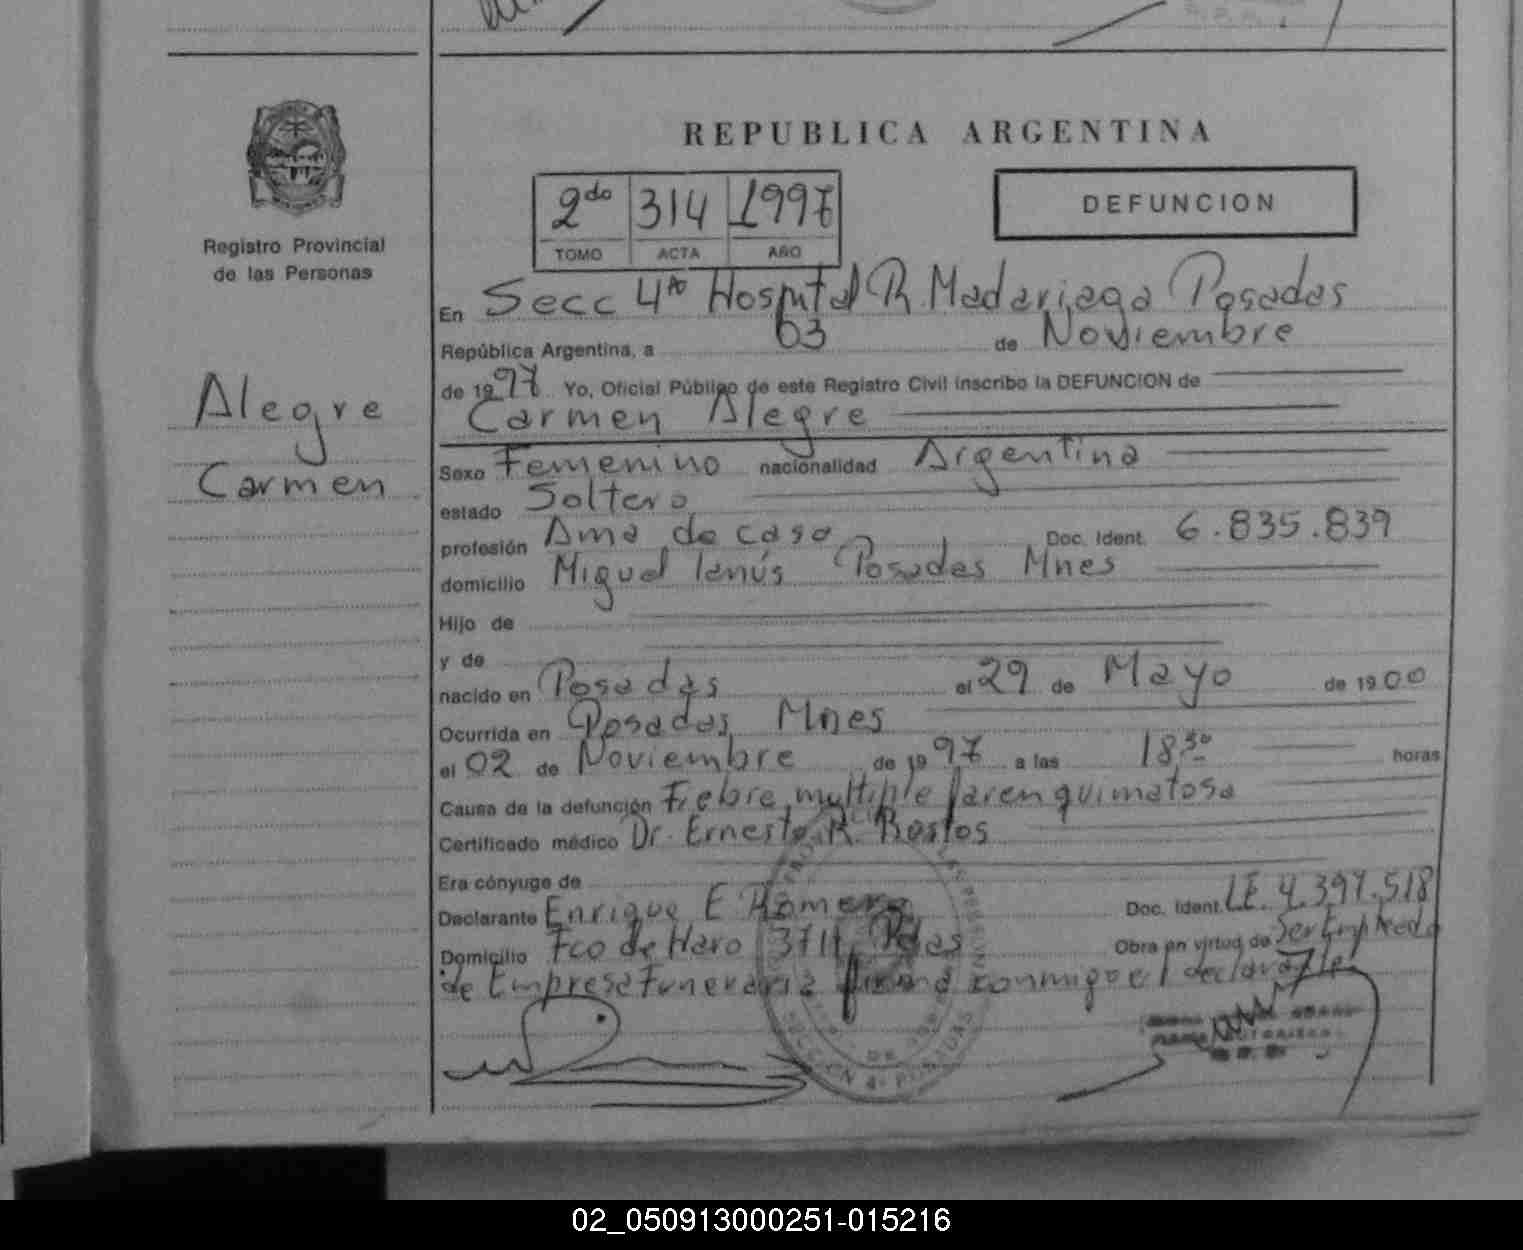 REPUBLICA ARGENTINA
2do 314 1997
TOMO ACTA AÑO
DEFUNCION
Registro Provincial
de las Personas
Alegre
Carmen
En Secc 4ta Hospital R. Madariaga Posadas
República Argentina, a 03 de Noviembre
de 1997 Yo, Oficial Público de este Registro Civil inscribo la DEFUNCION de
Carmen Alegre
Sexo Femenino nacionalidad Argentina
estado Soltero
profesión Ama de casa Doc. Ident. 6.835.839
domicilio Miguel Lanús Posadas Mnes
Hijo de
y de
nacido en Posadas el 29 de Mayo de 1900
Ocurrida en Posadas Mnes
el 02 de Noviembre de 1997 a las 18,30 horas
Causa de la defunción Fiebre multiple Parenquimatosa
Certificado médico Dr. Ernesto R. Bastos
Era cónyuge de
Declarante Enrique E Romero Doc. Ident. LE. 4.397.518
Domicilio Fco de Haro 3711 Pdas Obra en virtud de Ser Empleado
de Empresa Funeraria firmando conmigo el declarante
SECCION 4a POSADAS
02_050913000251-015216